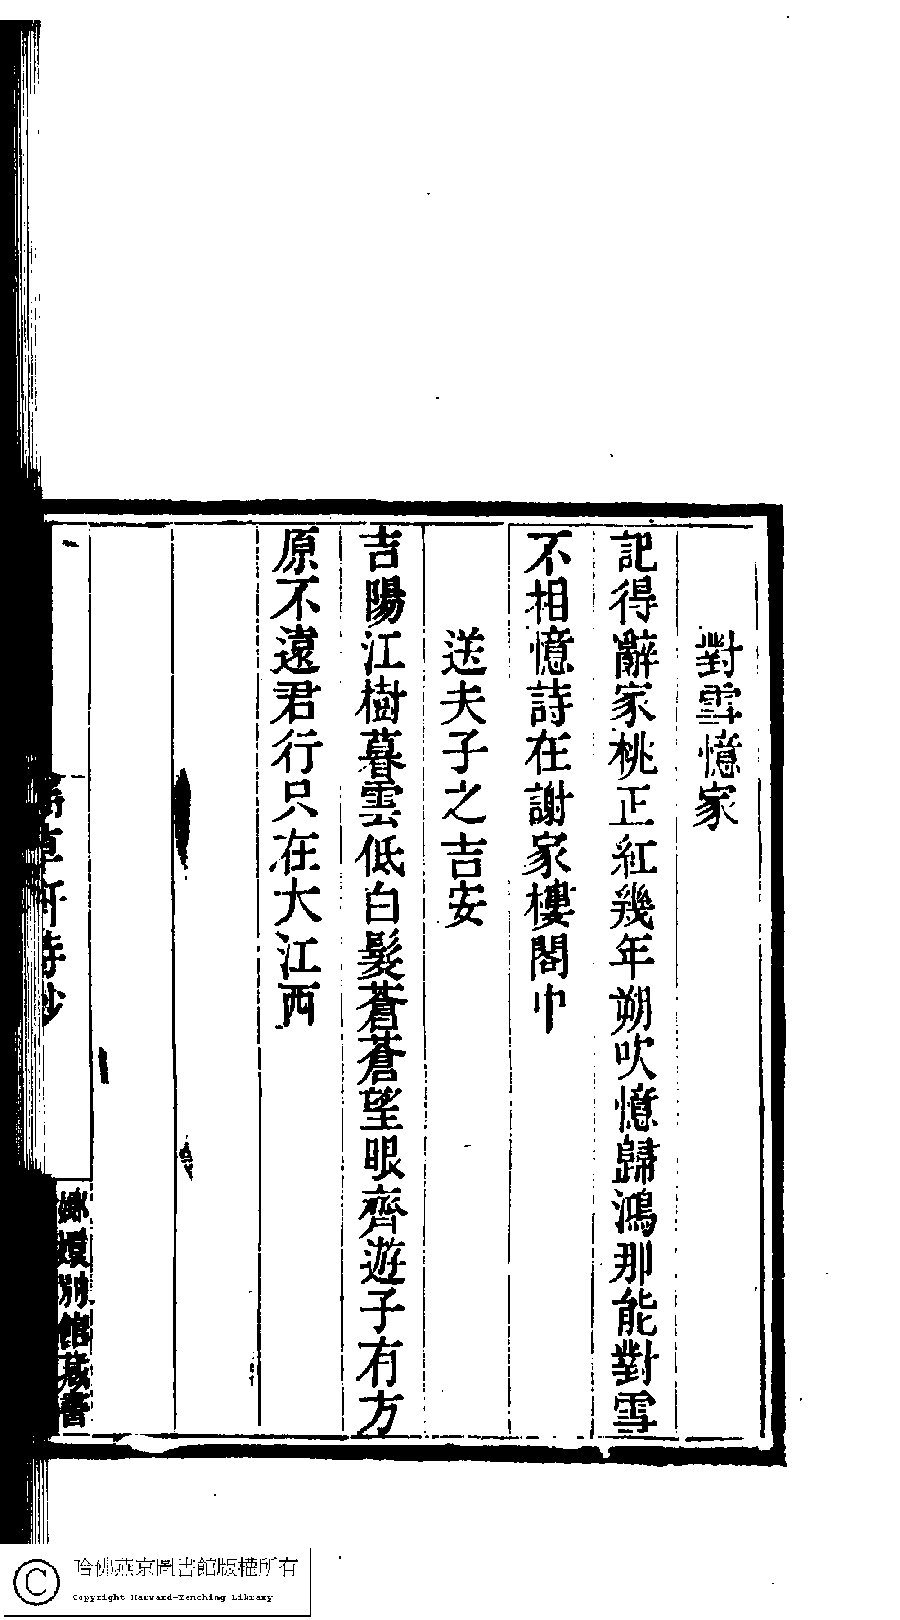 對雪憶家
記得辭家桃正紅幾年朔吹憶歸鴻那能對雪
不相憶詩在謝家樓閣中
送夫子之吉安
吉陽江樹暮雲低白髮蒼蒼望眼齊遊子有方
原不遠君行只在大江西
草軒詩鈔
嫏嬛別館藏書
哈佛燕京圖書館版權所有
Copyright Harvard-Yenching Library